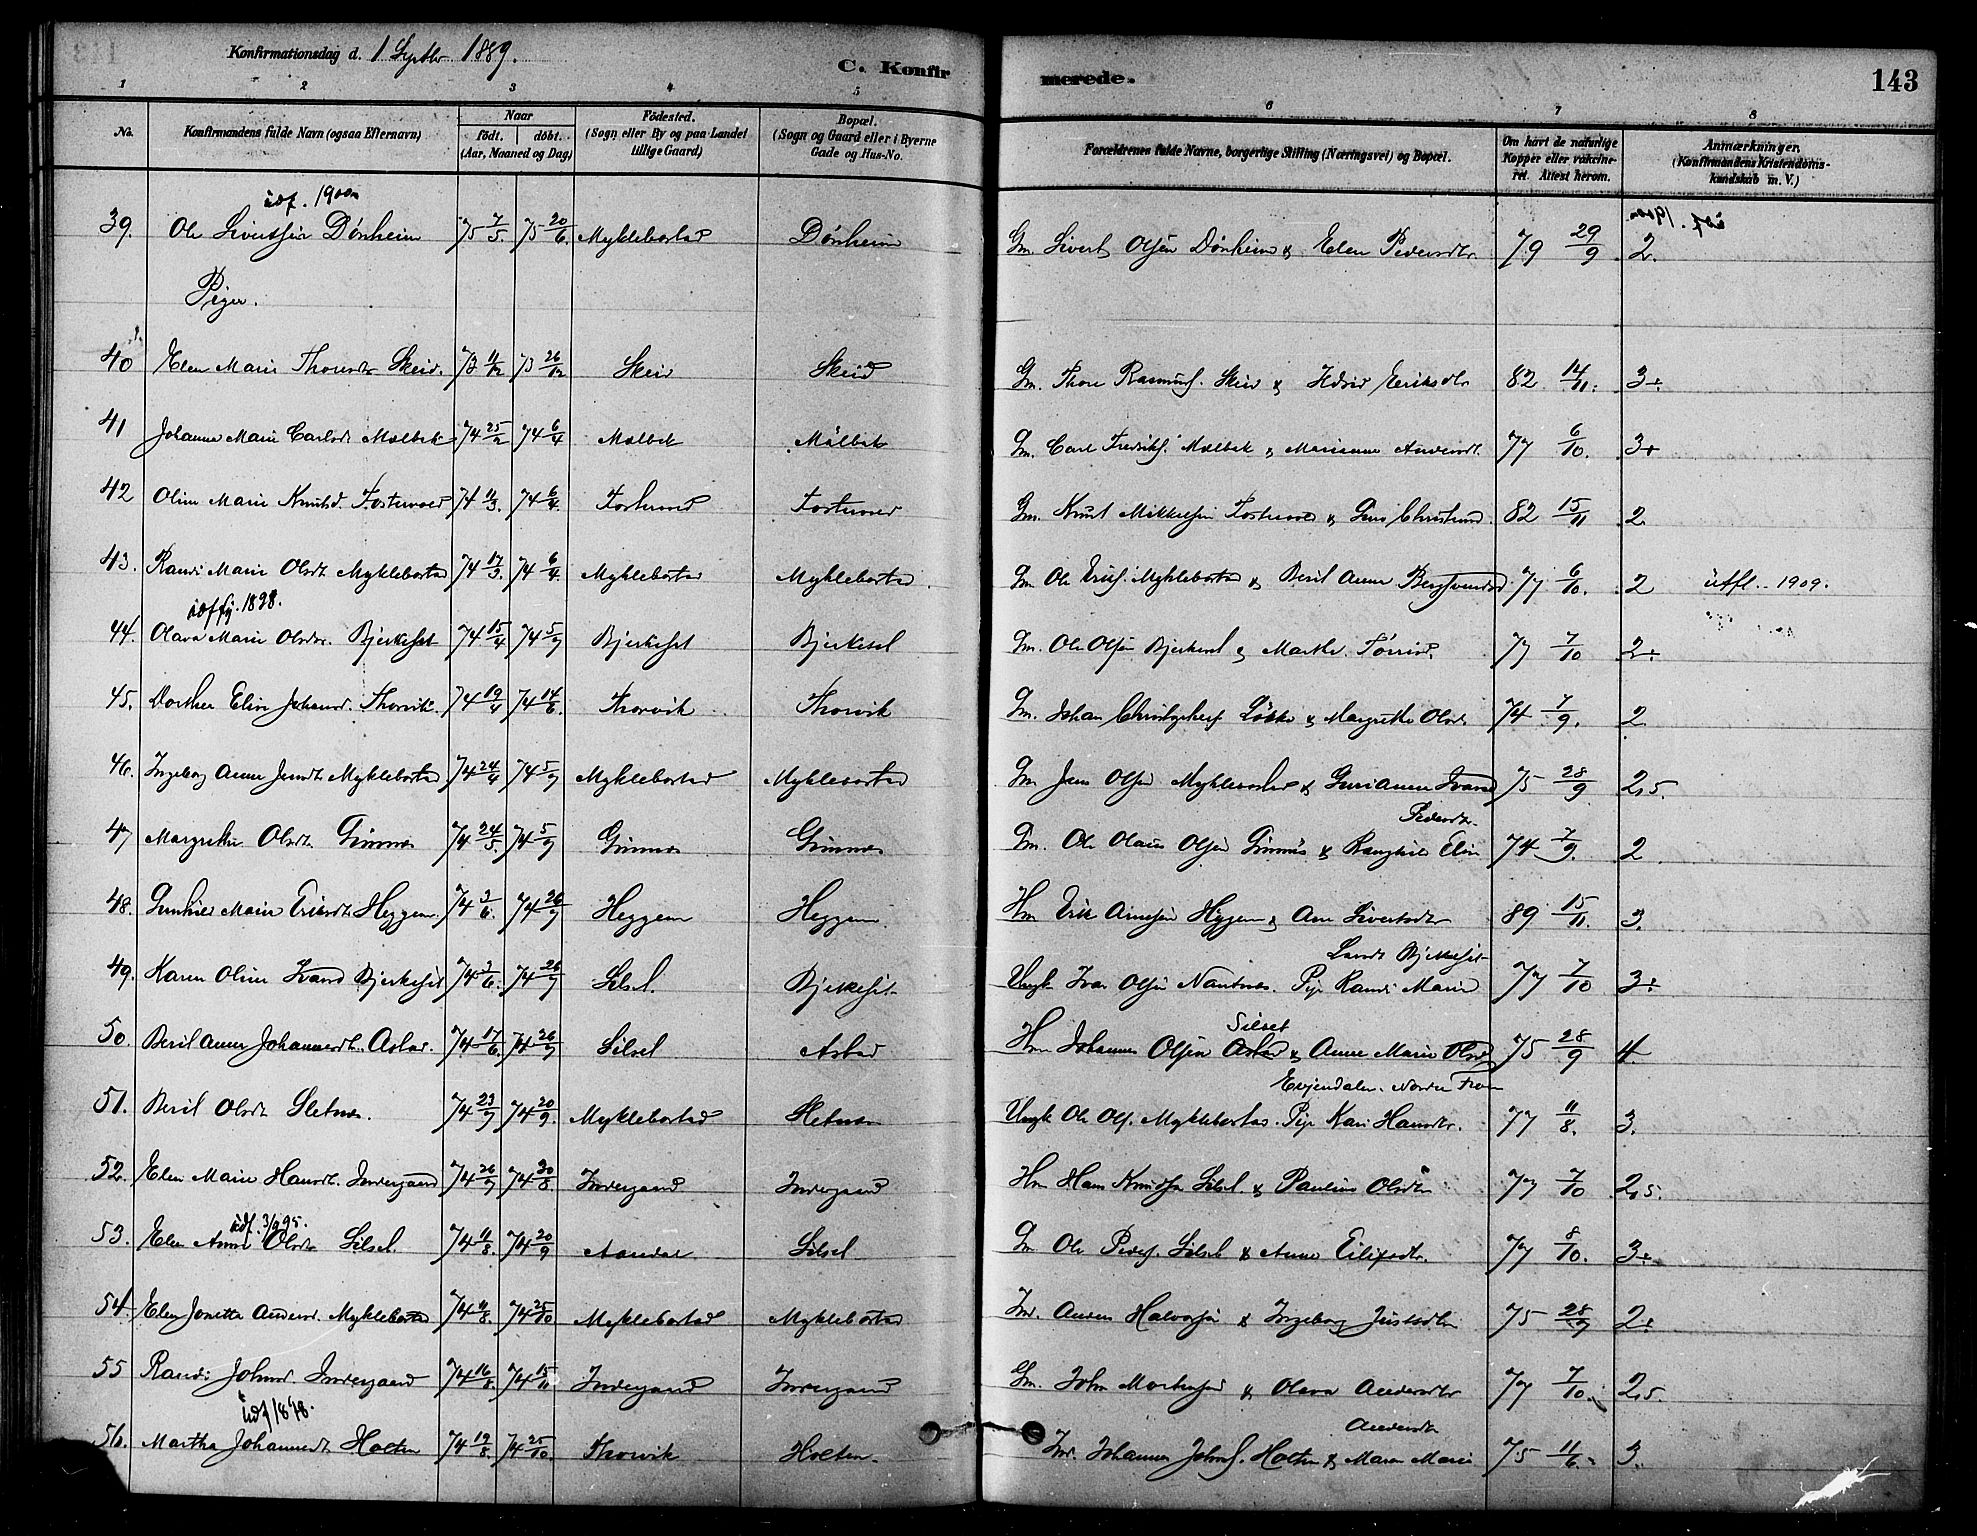 Konfirmationsdag d. 1 Septbr 1889.
C. Konfir merede.
143
1 2 3 4 5 6 7 8
No.
Konfirmandens fulde Navn (ogsaa Efternavn)
Naar
født. døbt.
(Aar, Maaned og Dag)
Fødested.
(Sogn eller By og paa Landet
tillige Gaard)
Bopæl.
(Sogn og Gaard eller i Byerne
Gade og Hus-No.
Forældrenes fulde Navne, borgerlige Stilling (Næringsvei) og Bopæl.
Om havt de naturlige
Kopper eller vakcine-
ret. Attest herom.
Anmærkninger.
(Konfirmandens Kristendoms-
kundskab m. V.)
udf. 1900 udf. 1900
39. Ole Sivertsen Dønheim 75 7/5. 75 20/6. Myklebostad Dønheim Gm. Sivert Olsen Dønheim & Elen Pedersdtr 79 29/9 2.
Piger.
40 Elen Marie Thoresdtr Skeid. 73 11/12 73 26/12 Skeid Skeid Gm. Thore Rasmuss. Skeid & Eriksdtr 82 14/11. 3+.
41 Johanne Marie Carlsdt Mælbek 74 25/2 74 6/4 Mælbek Mälbek Gm. Carl Fredriks. Mælbek & Marianne Andersdt. 77 6/10. 3+
42 Oline Marie Knutsd. Fostervold 74 11/3. 74 6/4. Fostervold Fostervold Gm. Knut Mikkelsen Fostervold & 82 15/11 2.
43. Randi Marie Olsdt Myklebostad 74 17/3. 74 6/4. Myklebostad Myklebostad Gm Ole Eriks. Myklebostad & Beril Anne 77 6/10. 2 utfl. 1909.
1898.
44. Olava Marie Olsdtr. Bjerkeset 74 15/4 74 5/7 Bjerkeset Bjerkeset Gm. Ole Olsen Bjerkeset & Marthe 77 7/10 2+
45. Dorthea Elin Johansd. Thorvik. 74 19/4 74 14/6. Thorvik Thorvik Gm. Johan & Margrethe Olsd. 74 7/9. 2
46. Ingeborg Anne Jensdt Myklebostad 74 24/4 74 5/7 Myklebostad Myklebostad Gm Jens Olsen Myklebostad & Guri Anne Ivarsd 75 28/9 2,5.
Pedersdt.
47 Margrethe Olsdt Gimnes 74 24/5. 74 5/7 Gimnes Gimnes Gm. Ole Olaus Olsen Gimnes & Ranghild Elin 74 7/9. 2
48. Gunhild Marie Eriksdt Heggem. 74 2/6. 74 26/7 Heggem Heggem Hm Erik Arnesen Heggem & Ane Sivertsdtr 89 15/11. 3.
Bjerkeset
49. Karen Oline Ivarsd Bjerkeset 74 3/6. 74 26/7 Silset. Bjerkeset Ungk. Ivar Olsen Nautnes. Pige Randi Marie 77 7/10 3+
Silset
50. Beril Anne Johannesdt. Astad. 74 17/6. 74 26/7 Silset Astad Hm Johannes Olsen Astad & Anne Marie Olsd 75 28/9 4.
51. Beril Olsdt Sletnes. 74 23/7 74 20/9. Myklebostad Sletnes Ungk Ole Ols. Myklebostad. Pige Kari Hansdtr. 77 11/8. 3.
52. Elen Marie Hansdt. Indergaard 74 26/7 74 30/8. Indergaard Indergaard Hm Hans Knudsen Silset. & Pauline Olsdtr 77 7/10 2,5.
udf. 3/9 95.
53. Elen Anne Olsdtr Silset. 74 11/8. 74 20/9 Silset Gm Ole Peders. Silset & Anne Eilifsdtr. 77 8/10. 3+
54. Elen Jonetta Andersd. Myklebostad 74 11/8. 74 25/10 Myklebostad Myklebostad Ind. Anders Halvorsen & Ingeborg 75 28/9 2+
55 Randi Johnsd. Indergaard 74 16/8. 74 15/11 Indergaard Indergaard Gm. John Mortensen & Olava Andersdtr 77 7/10. 2,5
udf 1898. Andersdt
56. Martha Johannesdt Holten 74 19/8. 74 25/10. Thorvik Holten. Ind. Johannes Johns. Holten & Maren Marie 75 11/6. 3.